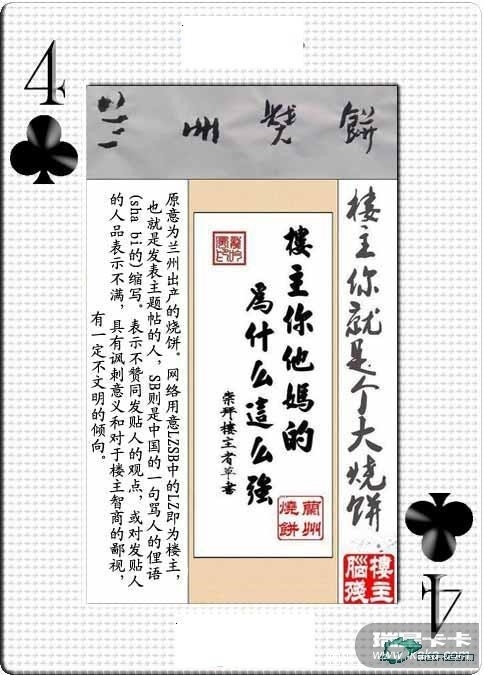 4
兰州燒餅
樓主你就是个大燒餅
樓主腦殘
樓主你他媽的
爲什么這么強
崇拜樓主者草書
蘭州燒餅
原意为兰州出产的烧饼。网络用意LZSB中的LZ即为楼主，
也就是发表主题帖的人，SB则是中国的一句骂人的俚语
(sha bi的)缩写。表示不赞同发贴人的观点，或对发贴人
的人品表示不满，具有讽刺意义和对于楼主智商的鄙视，
有一定不文明的倾向。
4
瑞星卡卡